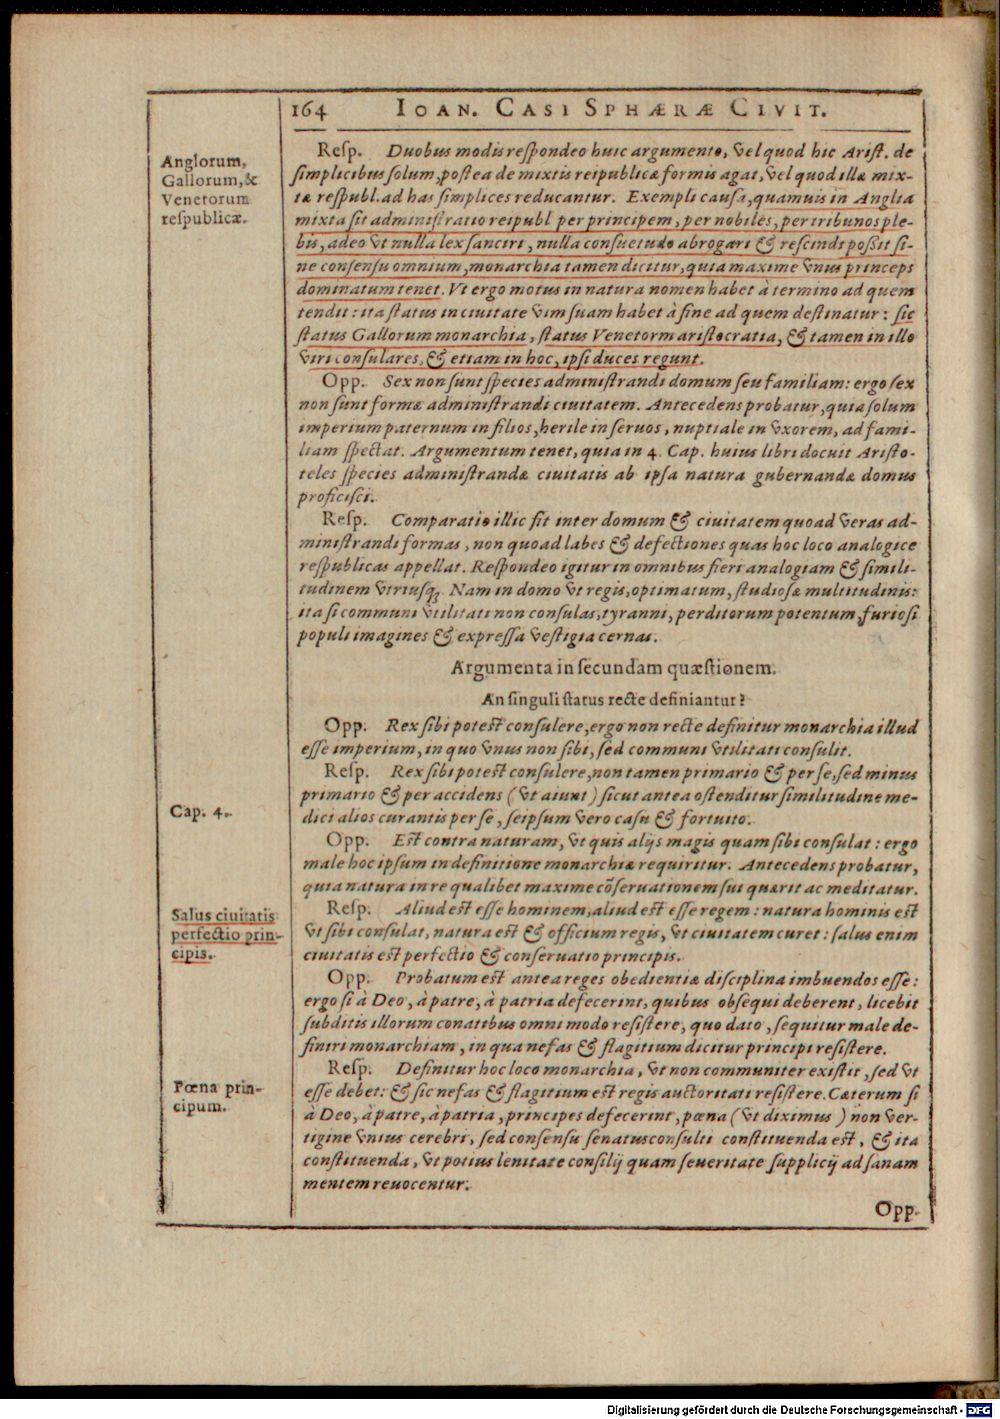 164 IOAN. CASI SPHÆRÆ CIVIT.
Anglorum,
Gallorum, &
Venetorum
respublicæ.
Resp. Duobus modis respondeo huic argumento, vel quod hic Arist. de
simplicibus solum, postea de mixtis reipublicæ formis agat, vel quod illæ mix-
tæ respubl. ad has simplices reducantur. Exempli causa, quamuis in Anglia
mixta sit administratio reipubl per principem, per nobiles, per tribunos ple-
bis, adeo vt nulla lex sanciri, nulla consuetudo abrogari & rescindi possit si-
ne consensu omnium, monarchia tamen dicitur, quia maxime vnus princeps
dominatum tenet. Vt ergo motus in natura nomen habet à termino ad quem
tendit: ita status in ciuitate vim suam habet à fine ad quem destinatur: sic
status Gallorum monarchia, status Venetorm aristocratia, & tamen in illo
viri consulares, & etiam in hoc, ipsi duces regunt.
Opp. Sex non sunt species administrandi domum seu familiam: ergo sex
non sunt formæ administrandi ciuitatem. Antecedens probatur, quia solum
imperium paternum in filios, herile in seruos, nuptiale in vxorem, ad fami-
liam spectat. Argumentum tenet, quia in 4. Cap. huius libri docuit Aristo-
teles species administrandæ ciuitatis ab ipsa natura gubernandæ domus
proficisci.
Resp. Comparatio illic fit inter domum & ciuitatem quoad veras ad-
ministrandi formas, non quoad labes & defectiones quas hoc loco analogice
respublicas appellat. Respondeo igitur in omnibus fieri analogiam & simili-
tudinem vtriusq;. Nam in domo vt regis, optimatum, studiosæ multitudinis:
ita si communi vtilitati non consulas, tyranni, perditorum potentum, furiosi
populi imagines & expressa vestigia cernas.
Argumenta in secundam quæstionem.
An singuli status recte definiantur?
Opp. Rex sibi potest consulere, ergo non recte definitur monarchia illud
esse imperium, in quo vnus non sibi, sed communi vtilitati consulit.
Resp. Rex sibi potest consulere, non tamen primario & per se, sed minus
primario & per accidens (vt aiunt) sicut antea ostenditur similitudine me-
Cap. 4.
dici alios curantis per se, seipsum vero casu & fortuito.
Opp. Est contra naturam, vt quis alijs magis quam sibi consulat: ergo
male hoc ipsum in definitione monarchiæ requiritur. Antecedens probatur,
quia natura in re qualibet maxime cõseruationem sui quærit ac meditatur.
Salus ciuitatis
perfectio prin-
cipis.
Resp. Aliud est esse hominem, aliud est esse regem: natura hominis est
vt sibi consulat, natura est & officium regis, vt ciuitatem curet: salus enim
ciuitatis est perfectio & conseruatio principis.
Opp. Probatum est antea reges obedientiæ disciplina imbuendos esse:
ergo si à Deo, à patre, à patria defecerint, quibus obsequi deberent, licebit
subditis illorum conatibus omni modo resistere, quo dato, sequitur male de-
finiri monarchiam, in qua nefas & flagitium dicitur principi resistere.
Pœna prin-
cipum.
Resp. Definitur hoc loco monarchia, vt non communiter existit, sed vt
esse debet: & sic nefas & flagitium est regis auctoritati resistere. Cæterum si
à Deo, à patre, à patria, principes defecerint, pœna (vt diximus) non ver-
tigine vnius cerebri, sed consensu senatusconsulti constituenda est, & ita
constituenda, vt potius lenitate consilij quam seueritate supplicij ad sanam
mentem reuocentur.
Opp.
Digitalisierung gefördert durch die Deutsche Forschungsgemeinschaft - DFG